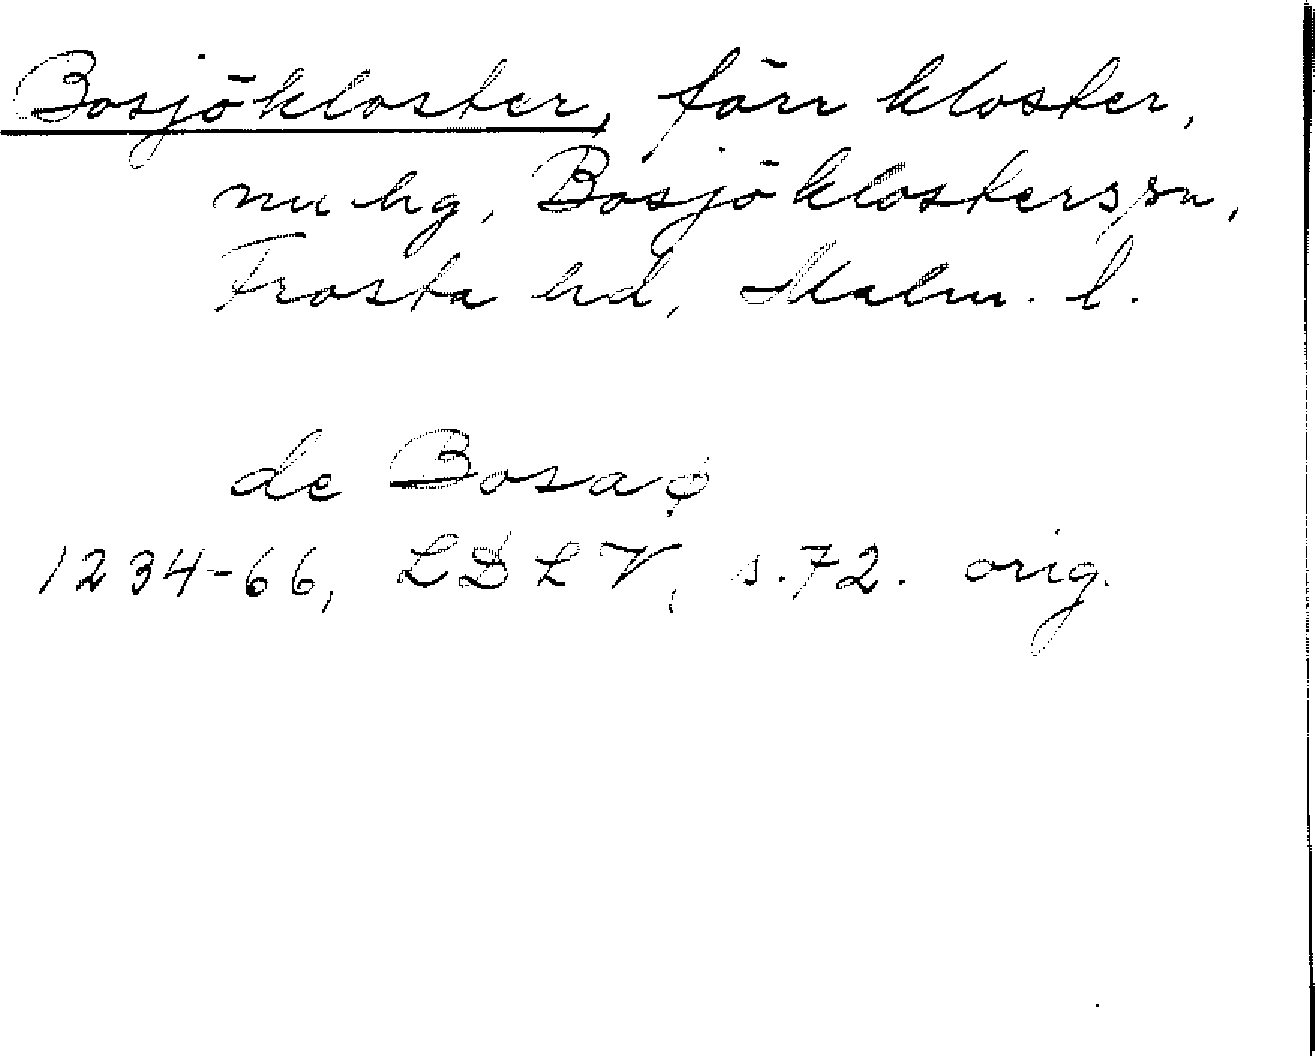 Bosjökloster, förr kloster,
nu hg, Bosjöklosters sn,
Frosta hd, Malm. l.
de Bosaø
1234-66, LDLV, s.72. orig.